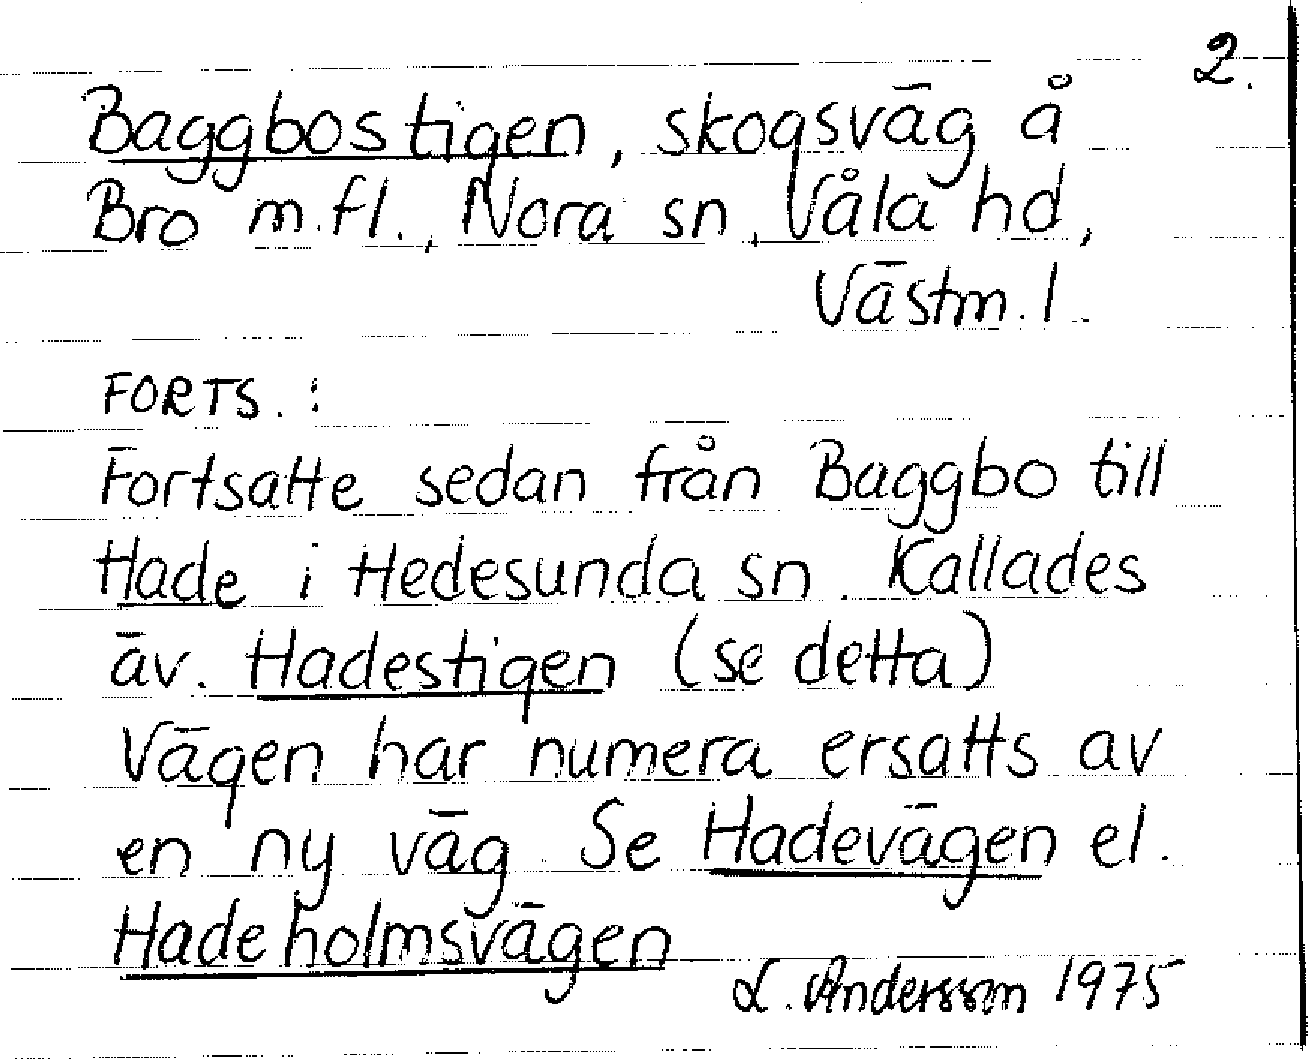 2.
Baggbostigen, skogsväg å
Bro m.fl., Nora sn, Våla hd,
Västm. l.
FORTS. :
Fortsatte sedan från Baggbo till
Hade i Hedesunda sn. Kallades
äv. Hadestigen (se detta)
Vägen har numera ersatts av
en ny väg. Se Hadevägen el.
Hadeholmsvägen
L. Andersson 1975